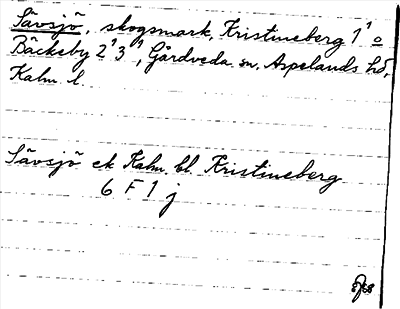 Sävsjö, skogsmark, Kristineberg 1¹ o
Bäckeby 2¹ 3¹, Gårdveda sn, Aspelands hd,
Kalm l.
Sävsjö ek Kalm. bl. Kristineberg
6 F 1 j